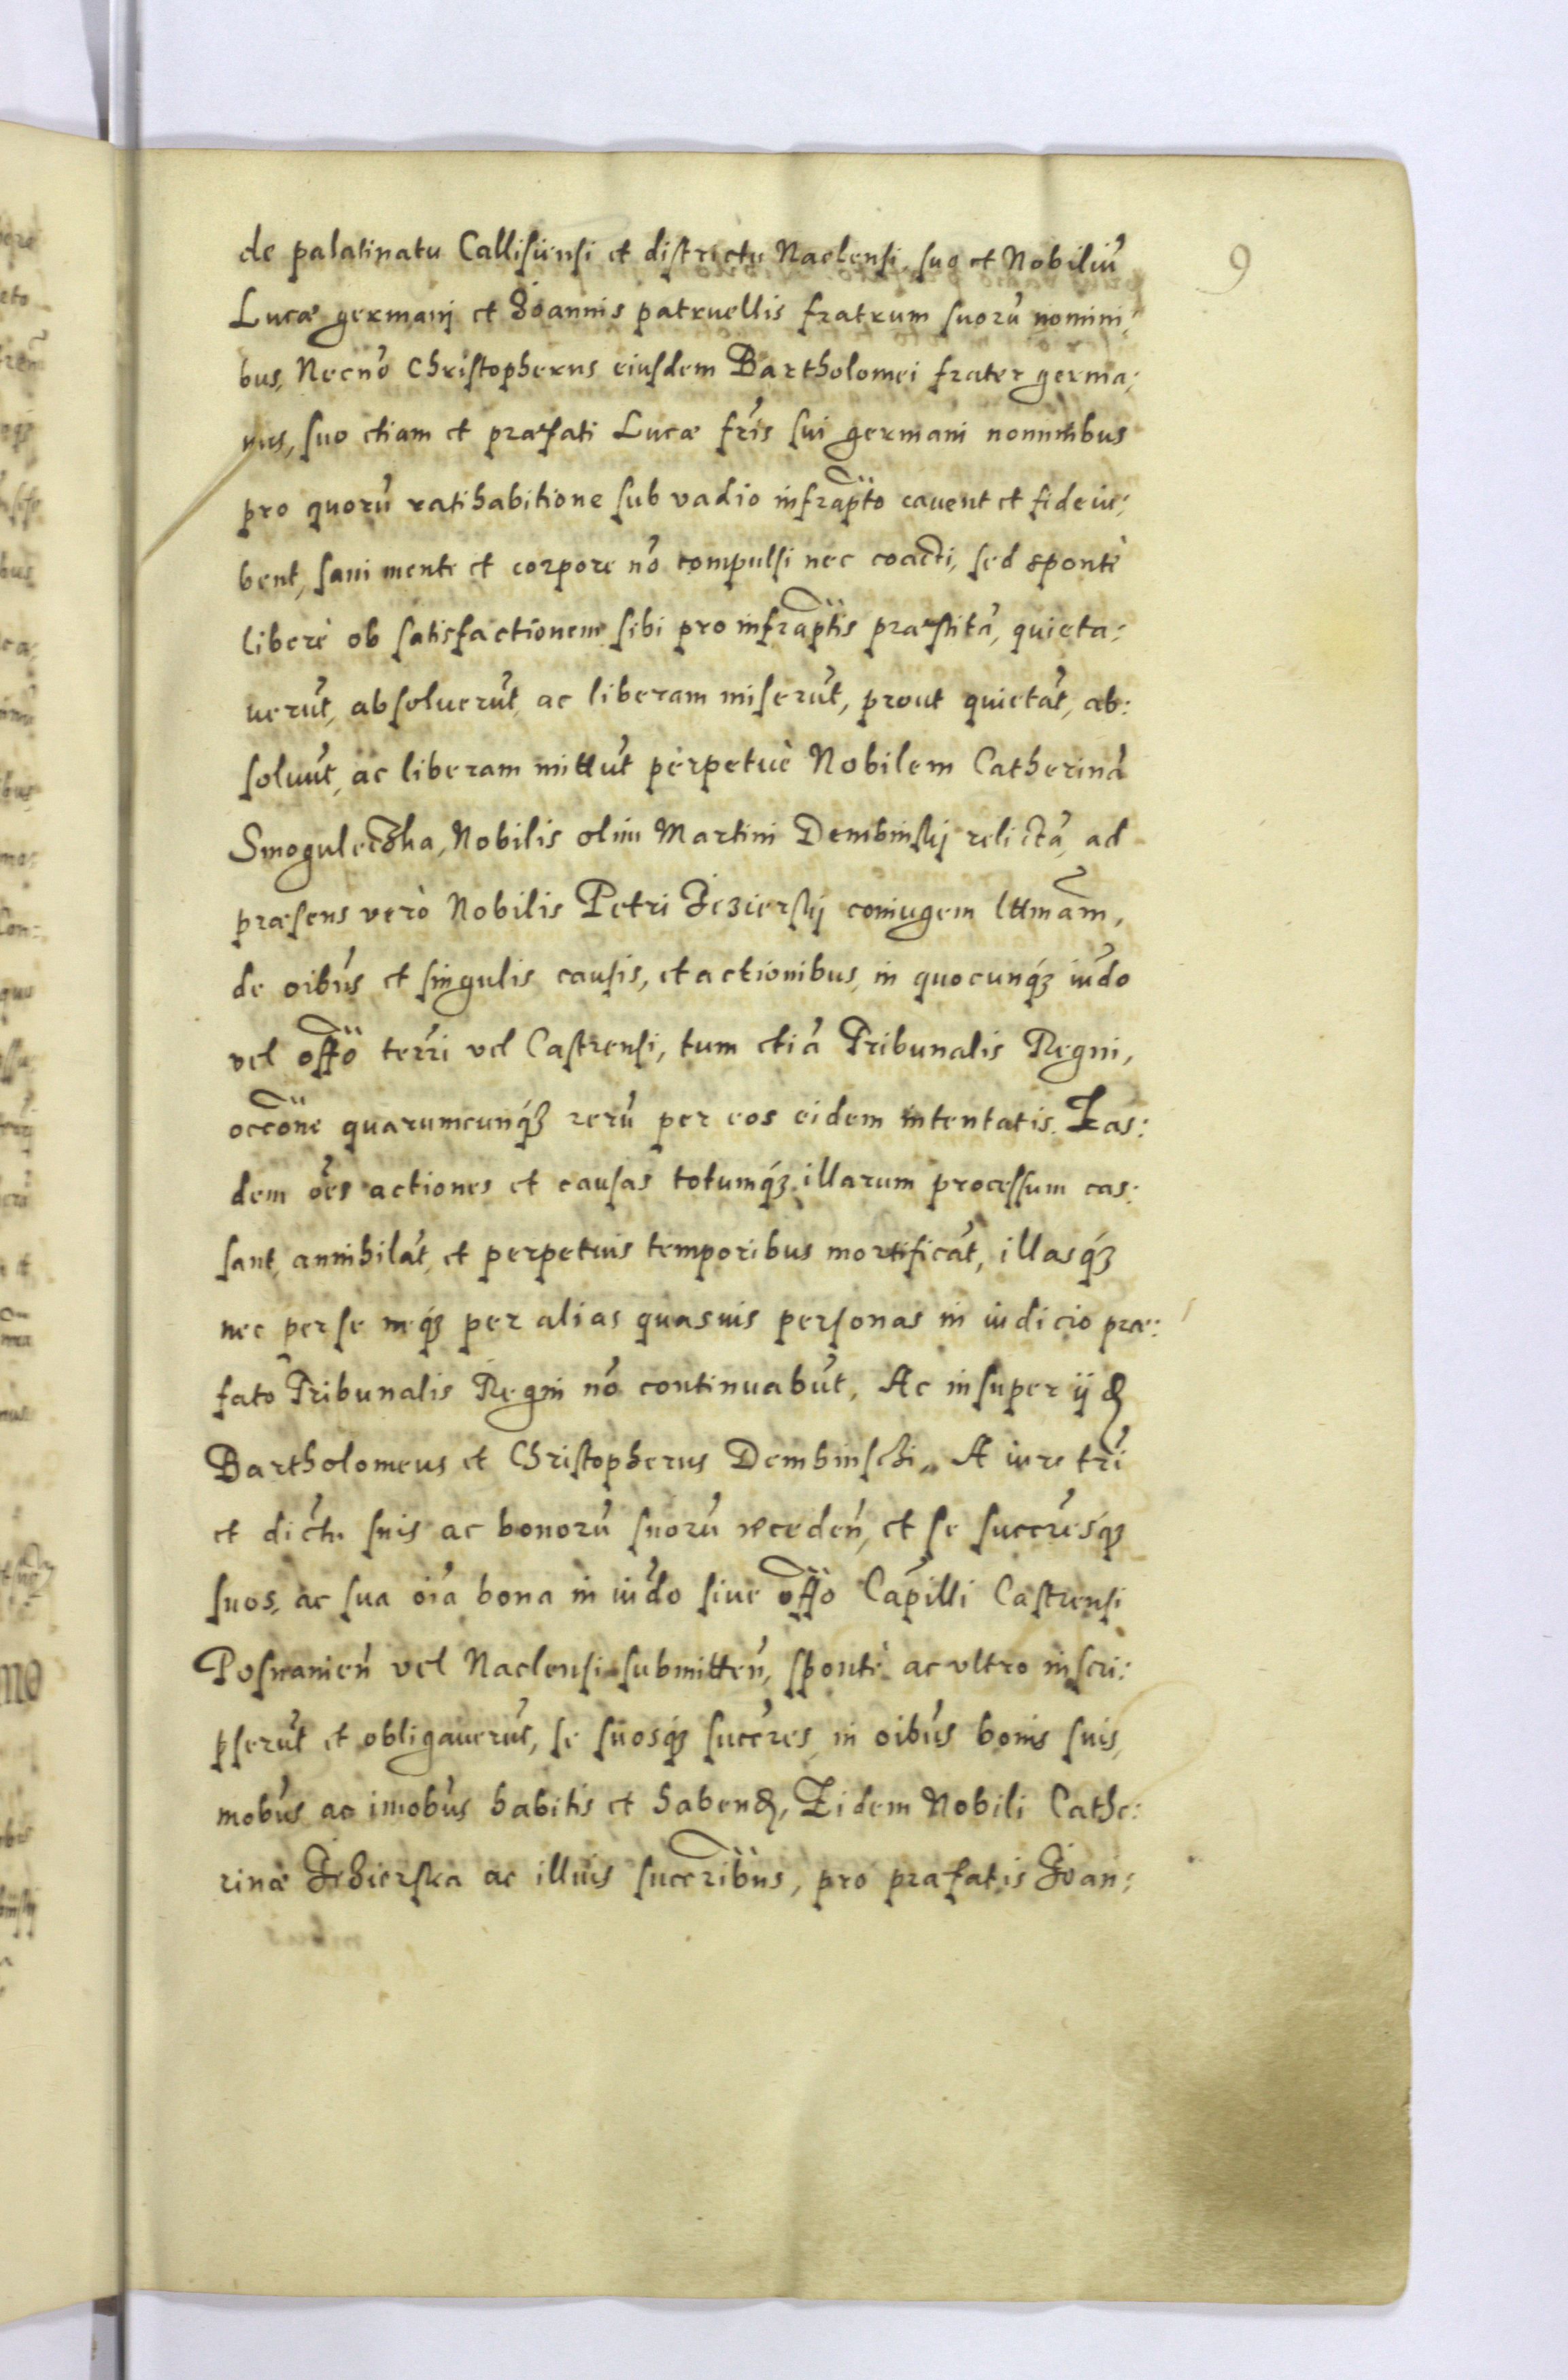 9
de palatinatu Callisiensi et districtu Naclensi, suo et Nobiliũ
Lucæ germanj et Joannis patruellis fratrum suorũ nomini:
bus, Necnõ Christopherus eiusdem Bartholomei frater germa:
nus, suo etiam et præfati Lucæ fr̃is sui germani nominibus
pro quorũ ratihabitione sub vadio infrap̃to cauent et fideiu:
bent, sani mente et corpore nõ compulsi nec coacti, sed spontè
liberè ob satisfactionem sibi pro infrap̃tis præstitã, quieta:
uerũt, absoluerũt, ac liberam miserũt, prout quietãt, ab:
soluũt, ac liberam mittũt perpetuè Nobilem Catherinã
Smogulec3ka, Nobilis olim Martini Dembinskj relictã, ad
præsens verò Nobilis Petri Jezierskj coniugem lttmãm,
de oib̃us et singulis causis, et actionibus, in quocunq́3 iud̃o
vel off̃o terr̃i vel Castrensi, tum etiã Tribunalis Regni,
occõne quarumcunq́3 rerũ per eos eidem intentatis. Eas:
dem ões actiones et causas totumq́3 illarum processum cas:
sant, annihilãt, et perpetuis temporibus mortificãt, illasq́3
nec per se neq́3 per alias quasuis personas in iudicio præ:
fato Tribunalis Regni nõ continuabũt. Ac insuper ijd
Bartholomeus et Christopherus Dembinschi, A iure tr̃i
et dictu suis ac bonorũ suorũ receden̄, et se succr̃esq́3
suos, ac sua oĩa bona in iud̃o siue off̃o Cap̃illi Castrensi
Posnanien̄ vel Naclensi submitten̄, spontè ac vltro inscri:
pserũt et obligauerũt, se suosq́3 succr̃es, in oib̃us bonis suis,
mob̃us ac im̃ob̃us habitis et habend, Eidem Nobili Cathe:
rinæ Jezierska ac illius succrib̃us, pro præfatis Joan: